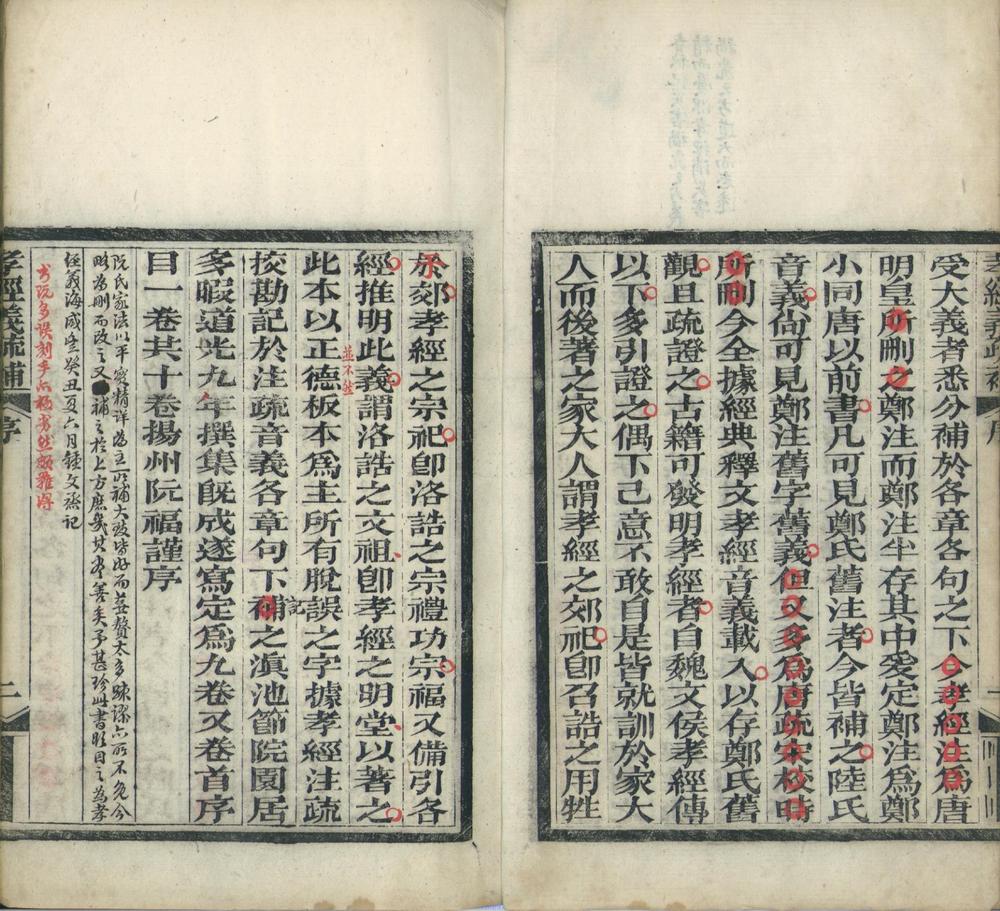 受大義者悉分補於各章各句之下今孝經注為唐
明皇所刪之鄭注而鄭注半存其中爰定鄭注為鄭
小同唐以前書凡可見鄭氏舊注者今皆補之陸氏
音義尚可見鄭注舊字舊義但又多為唐疏宋校時
所刪今全據經典釋文孝經音義載入以存鄭氏舊
觀且疏證之古籍可發明孝經者自魏文侯孝經傳
以下多引證之偶下己意不敢自是皆就訓於家大
人而後著之家大人謂孝經之郊祀卽召誥之用牲
於郊孝經之宗祀卽洛誥之宗禮功宗福又備引各
經推明此義謂洛誥之文祖卽孝經之明堂以著之
並不焠
此本以正德板本為主所有脫誤之字據孝經注疏
記
挍勘記於注疏音義各章句下補之滇池節院園居
多暇道光九年撰集旣成遂寫定為九卷又卷首序
目一卷共十卷揚州阮福謹序
阮氏家法以平實精詳為主所補大致皆好而益贅太多疎謬亦所不免今
略為刪而改之又補之於上方庶幾其盡善矣予甚珍此書
咸豐癸丑夏六月鍾文烝記
孝經義疏補 序 二